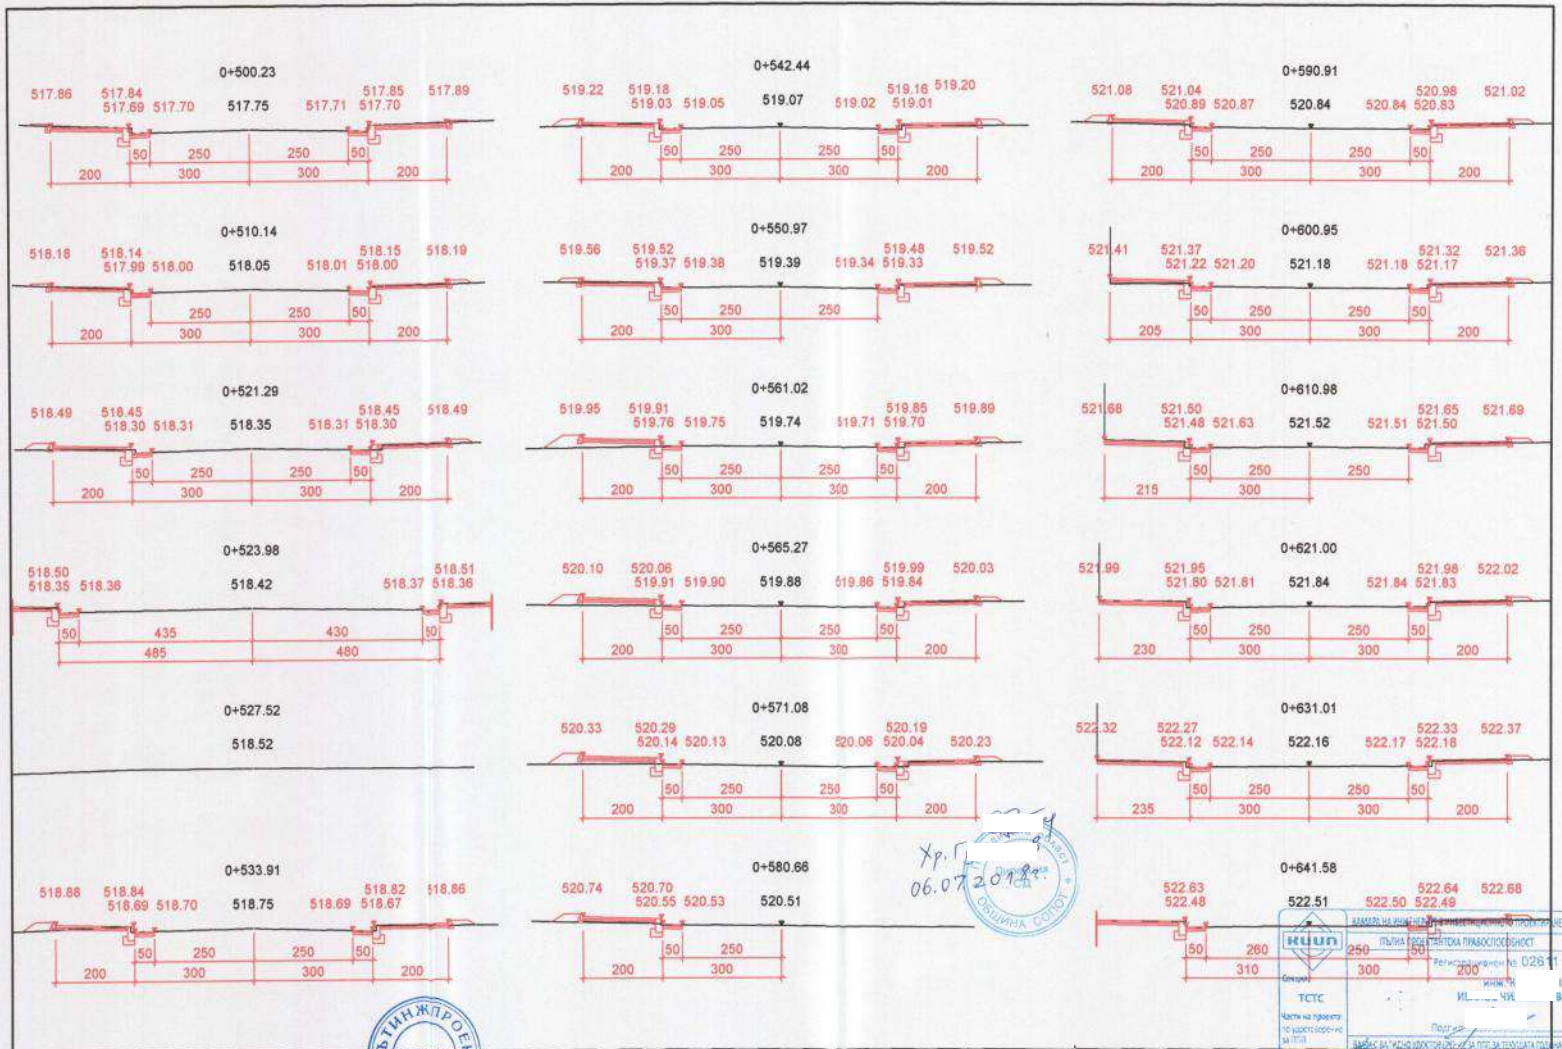 0+500.23
517.86 517.84 517.85 517.89
517.69 517.70 517.75 517.71 517.70
50 250 250 50
200 300 300 200
0+510.14
518.18 518.14 518.15 518.19
517.99 518.00 518.05 518.01 518.00
250 250 50
200 300 300 200
0+521.29
518.49 518.45 518.45 518.49
518.30 518.31 518.35 518.31 518.30
50 250 250 50
200 300 300 200
0+523.98
518.50 518.51
518.35 518.36 518.42 518.37 518.36
50 435 430 50
485 480
0+527.52
518.52
0+533.91
518.88 518.84 518.82 518.86
518.69 518.70 518.75 518.69 518.67
50 250 250 50
200 300 300 200
0+542.44
519.22 519.18 519.16 519.20
519.03 519.05 519.07 519.02 519.01
50 250 250 50
200 300 300 200
0+550.97
519.56 519.52 519.48 519.52
519.37 519.38 519.39 519.34 519.33
50 250 250
200 300
0+561.02
519.95 519.91 519.85 519.89
519.76 519.75 519.74 519.71 519.70
50 250 250 50
200 300 300 200
0+565.27
520.10 520.06 519.99 520.03
519.91 519.90 519.88 519.86 519.84
50 250 250 50
200 300 300 200
0+571.08
520.33 520.29 520.19
520.14 520.13 520.08 520.06 520.04 520.23
50 250 250 50
200 300 300 200
0+580.66
520.74 520.70
520.55 520.53 520.51
50 250
200 300
0+590.91
521.08 521.04 520.98 521.02
520.89 520.87 520.84 520.84 520.83
50 250 250 50
200 300 300 200
0+600.95
521.41 521.37 521.32 521.36
521.22 521.20 521.18 521.18 521.17
50 250 250 50
205 300 300 200
0+610.98
521.68 521.50 521.65 521.69
521.48 521.63 521.52 521.51 521.50
50 250 250
215 300
0+621.00
521.99 521.95 521.98 522.02
521.80 521.81 521.84 521.84 521.83
50 250 250 50
230 300 300 200
0+631.01
522.32 522.27 522.33 522.37
522.12 522.14 522.16 522.17 522.18
50 250 250 50
235 300 300 200
0+641.58
522.63 522.64 522.68
522.48 522.51 522.50 522.49
50 260 250 50
310 300 200
Хр. Г
06.07.2018г.
ОБЩИНА СОПОТ
КИИП
ПЪЛНА ПРОЕКТАНТСКА ПРАВОСПОСОБНОСТ
Регистрационен № 02611
Секция
ТСТС
Части на проекта